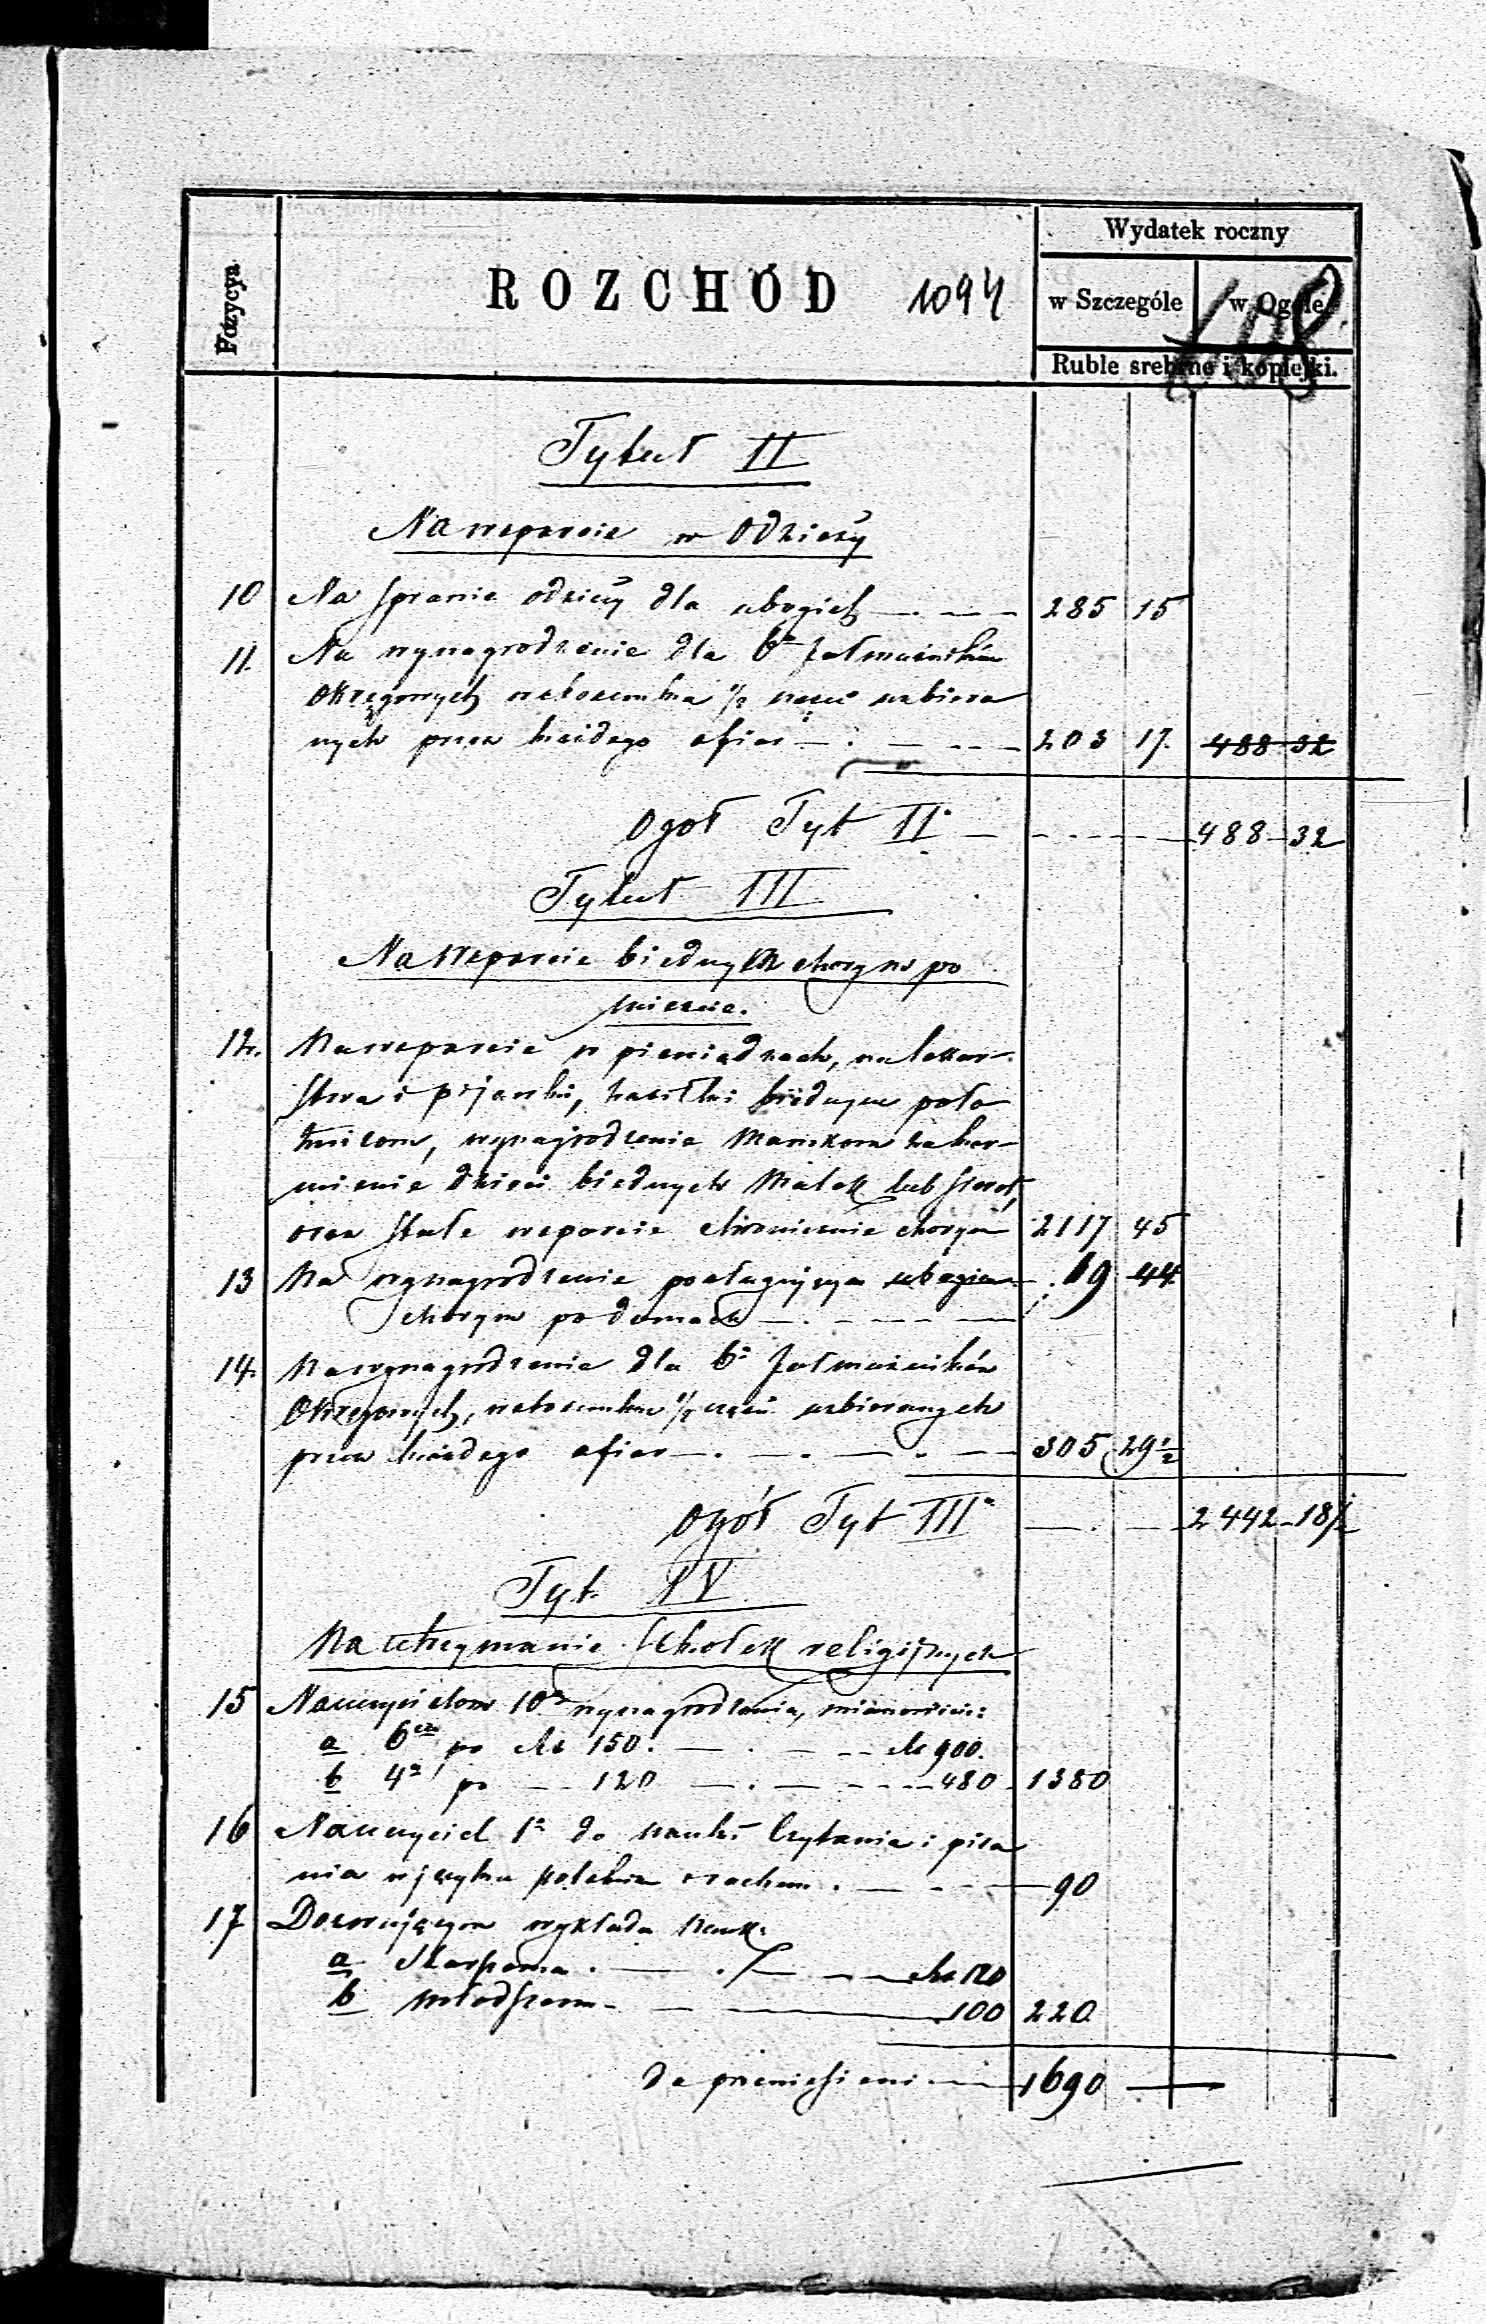 Pozycya
ROZCHÓD 1094
Wydatek roczny
w Szczególe w Ogóle
108
Ruble srebrne i kopiejki.
Tytuł II
Na wsparcie w Odzieży
10 Na sprawie odzieży dla ubogich 285 15
11. Na wynagrodzenie dla 6 Jałmużników
Okręgowych w stosunku części uzbiera
nych przez każdego ofiar 203 17. 488 32
Ogół Tyt II 488 32
Tytuł III
Na wsparcie biednych chorych po
mieście.
12. Na wsparcie w pieniądzach, na lekar-
stwa i pijawki, zasiłki biednym poło
żnicom, wynagrodzenie Mamkom za kar-
mienie dzieci biednych Matek lub sierot,
oraz stałe wsparcie chronicznie chorym 2117 45
13 Na wynagrodzenie posługującym ubogim 19 44
chorym po domach
14. Na wynagrodzenie dla 6 Jałmużników
Okręgowych, w stosunku części uzbieranych
przez każdego ofiar 305 29 1/2
Ogół Tyt III 2442 18 1/2
Tyt. IV
Na utrzymanie Szkołek religijnych
15 Nauczycielom 10 wynagrodzenia, mianowicie:
a 6 po Rs 150. Rs 900.
b 4 po 120 480 1380
16 Nauczyciel 1 do nauki Czytania i pisa
nia w języku polskim i rachun. 90
17 Dozorującym wykładu Nauk.
a Starszemu Rs 120
b młodszemu 100 220
Do przeniesieni 1690